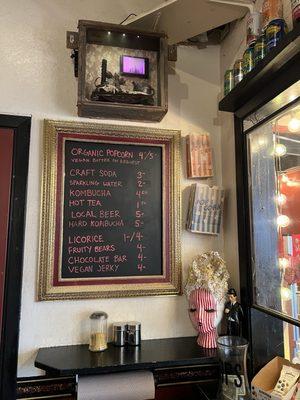 ORGANIC POPCORN 4/5-
VEGAN BUTTER ON REQUEST
CRAFT SODA 3-
SPARKLING WATER 2-
KOMBUCHA 4.00
HOT TEA 1.00
LOCAL BEER 5-
HARD KOMBUCHA 5-
LICORICE 1-/4-
FRUITY BEARS 4-
CHOCOLATE BAR 4-
VEGAN JERKY 4-
POPCORN